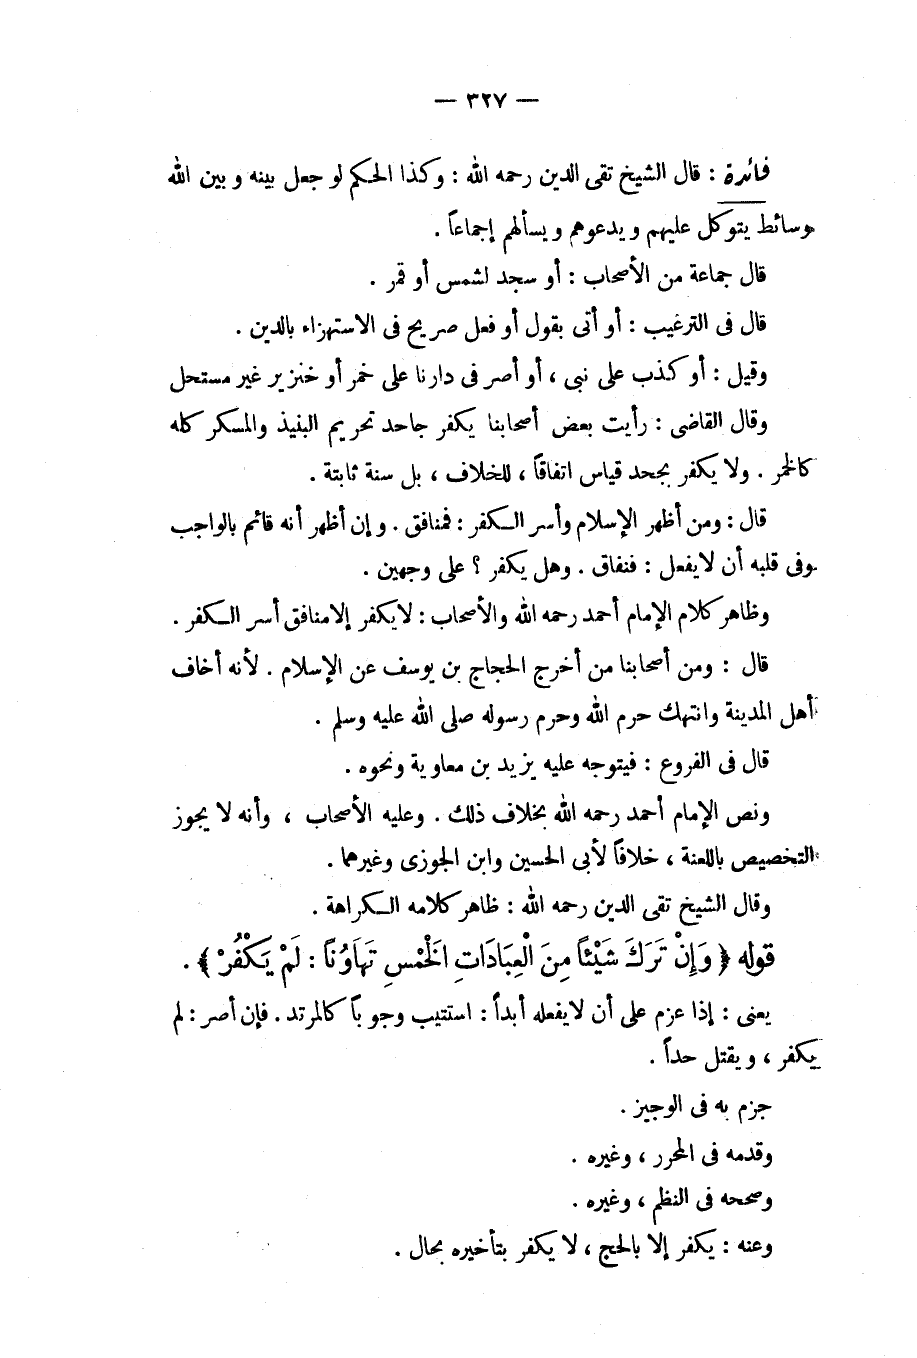 — ٣٢٧ —
فائدة : قال الشيخ تقى الدين رحمه الله : وكذا الحكم لو جعل بينه وبين الله
وسائط يتوكل عليهم ويدعوهم ويسألهم إجماعاً .
قال جماعة من الأصحاب : أو سجد لشمس أو قمر .
قال فى الترغيب : أو أتى بقول أو فعل صريح فى الاستهزاء بالدين .
وقيل : أو كذب على نبى ، أو أصر فى دارنا على خمر أو خنزير غير مستحل
وقال القاضى : رأيت بعض أصحابنا يكفر جاحد تحريم النبيذ والمسكر كله
كالخمر . ولا يكفر بجحد قياس اتفاقاً ، للخلاف ، بل سنة ثابتة .
قال : ومن أظهر الإسلام وأسر الكفر : فمنافق . وإن أظهر أنه قائم بالواجب
وفى قلبه أن لا يفعل : فنفاق . وهل يكفر ؟ على وجهين .
وظاهر كلام الإمام أحمد رحمه الله والأصحاب : لا يكفر إلا منافق أسر الكفر .
قال : ومن أصحابنا من أخرج الحجاج بن يوسف عن الإسلام . لأنه أخاف
أهل المدينة وانتهك حرم الله وحرم رسوله صلى الله عليه وسلم .
قال فى الفروع : فيتوجه عليه يزيد بن معاوية ونحوه .
ونص الإمام أحمد رحمه الله بخلاف ذلك . وعليه الأصحاب ، وأنه لا يجوز
التخصيص باللعنة ، خلافاً لأبى الحسين وابن الجوزى وغيرهما .
وقال الشيخ تقى الدين رحمه الله : ظاهر كلامه الكراهة .
قوله ﴿ وَإِنْ تَرَكَ شَيْئاً مِنَ الْعِبَادَاتِ الْخَمْسِ تَهَاوُنًا : لَمْ يَكْفُرْ ﴾ .
يعنى : إذا عزم على أن لا يفعله أبداً : استتيب وجوباً كالمرتد . فإن أصر : لم
يكفر ، ويقتل حداً .
جزم به فى الوجيز .
وقدمه فى المحرر ، وغيره .
وصححه فى النظم ، وغيره .
وعنه : يكفر إلا بالحج ، لا يكفر بتأخيره بحال .